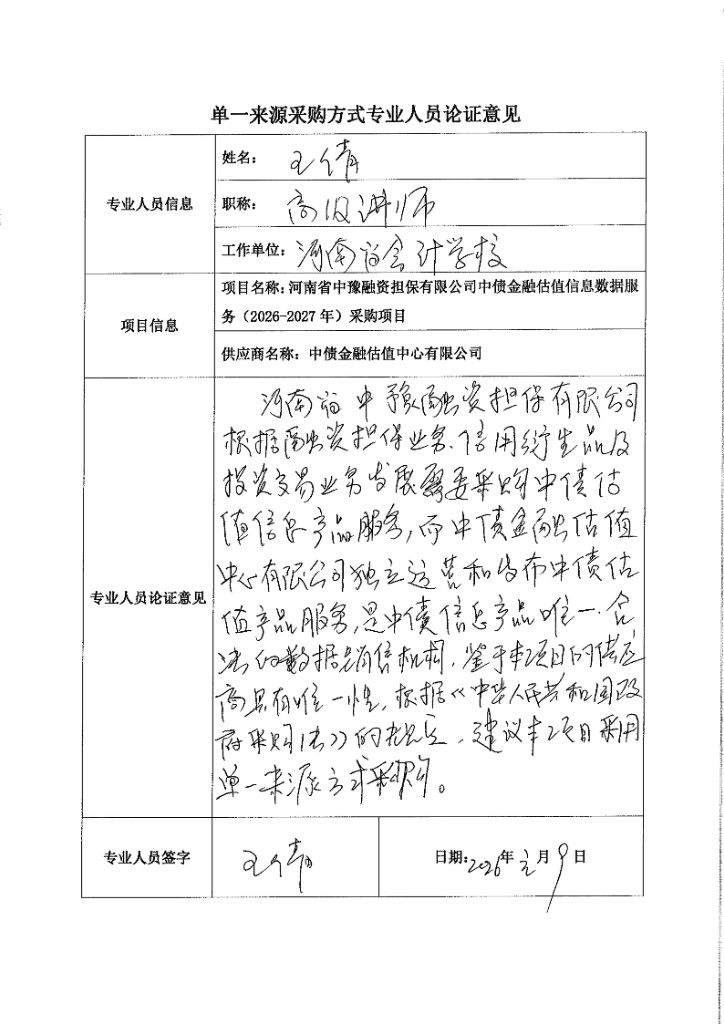 单一来源采购方式专业人员论证意见
专业人员信息
姓名： 王倩
职称： 高级讲师
工作单位： 河南省会计学校
项目信息
项目名称：河南省中豫融资担保有限公司中债金融估值信息数据服
务（2026-2027 年）采购项目
供应商名称：中债金融估值中心有限公司
专业人员论证意见
河南省中豫融资担保有限公司
根据融资担保业务、信用衍生品及
投资交易业务发展需要采购中债估
值信息产品服务，而中债金融估值
中心有限公司独立运营和发布中债估
值产品服务，是中债信息产品唯一合
法的数据销售机构，鉴于本项目的供应
商具有唯一性，根据《中华人民共和国政
府采购法》的规定，建议本项目采用
单一来源方式采购。
专业人员签字
王倩
日期：2026年 月 9 日